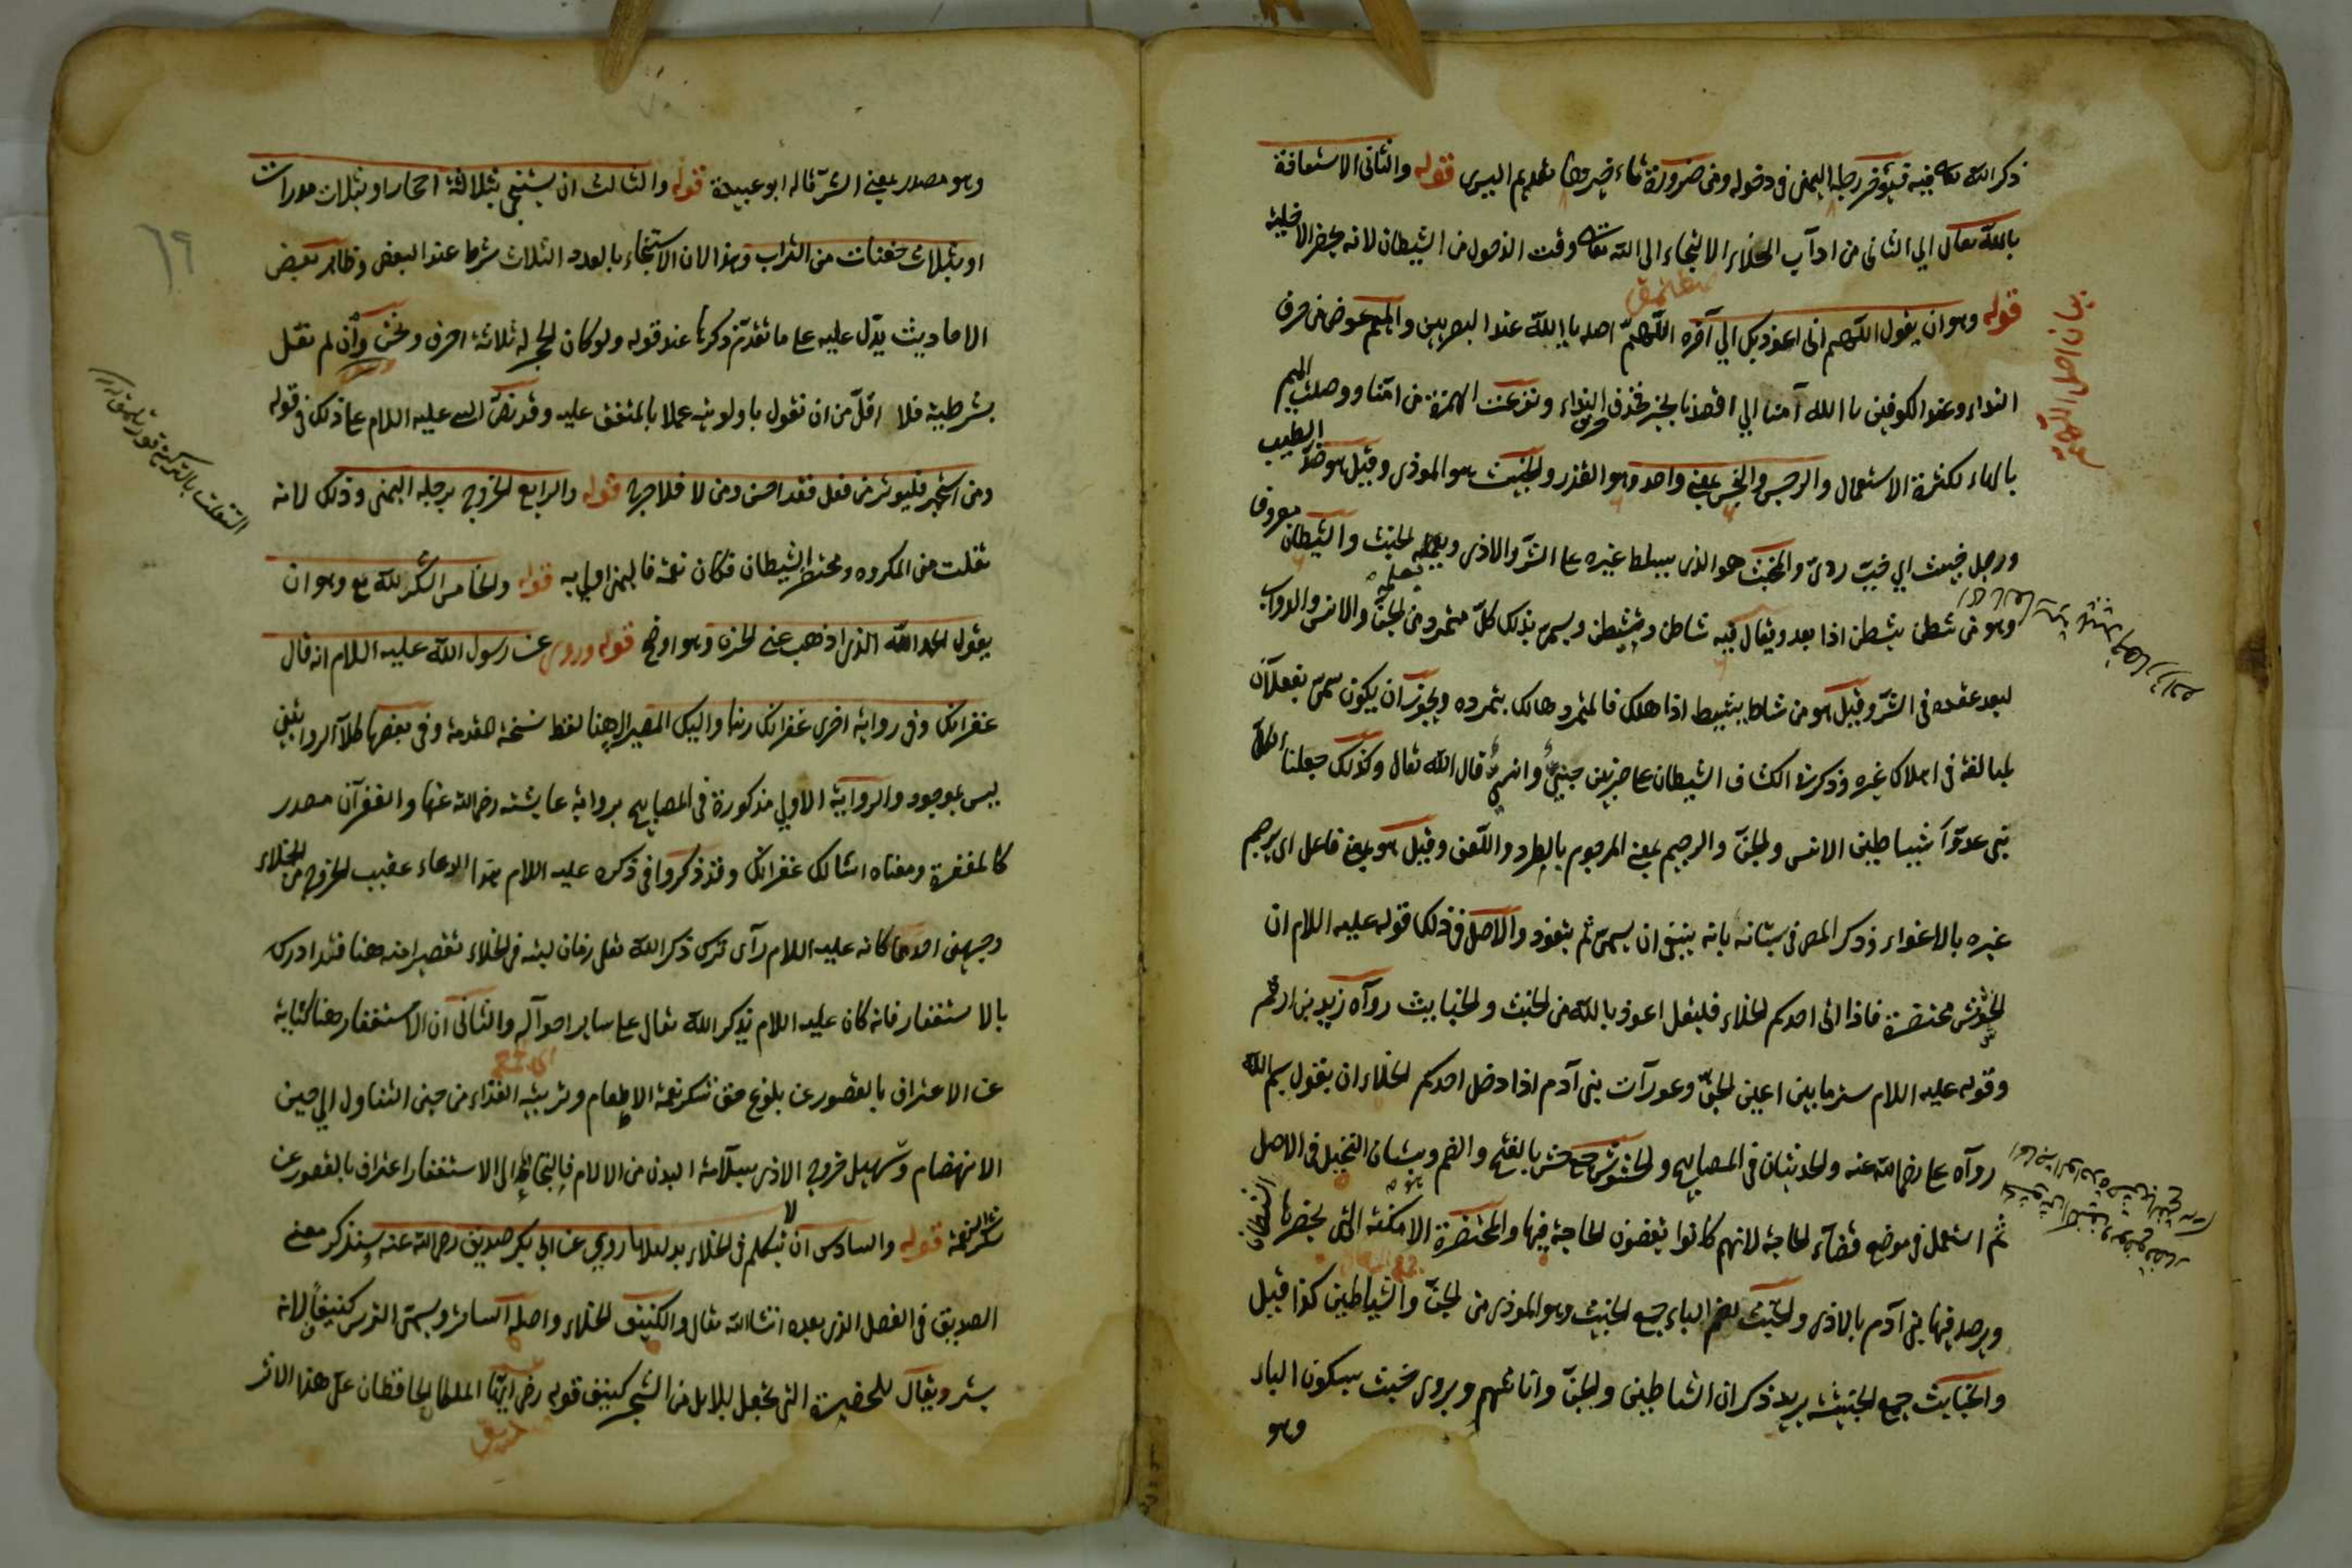 ذكر الله تعالى فيه فيؤخر رجله اليمنى في دخوله ومن ضرورة تأخيرها تقديم اليسرى قوله والثاني الاستعاذة
بالله تعالى اي الثاني من ادآب الخلاء الالتجاء الى الله تعالى وقت الدخول من الشيطان لانه يحضر الاخلية
قوله وهو ان يقول اللهم اني اعوذ بك الي آخره اللهم اصله يا الله عند البصريين والميم عوض من حرف
النداء وعند الكوفيين يا الله آمنا اي اقصدنا بخير فحذف حرف النداء ونزعت الهمزة من آمنا ووصلت الميم
بالهاء لكثرة الاستعمال والرجس والنجس بمعنى واحد وهو القذر والخبيث هو الموذي وقيل هو ضد الطيب
ورجل خبيث اي خب ردئ والمخبث هو الذي يسلط غيره على الشر والاذى ويعلمه الخبث والشيطان معروف
وهو من شطن يشطن اذا بعد ويقال فيه شاطن وتشيطن ويسمى بذلك كل متمرد من الجن والانس والدواب
لبعد عقده في الشر وقيل هو من شاط يشيط اذا هلك فالمتمرد هالك بتمرده ويجوز ان يكون سمى بفعلان
لمبالغته في اهلاك غيره وذكر في الكشاف الشيطان على ضربين جني وانسي قال الله تعالى وكذلك جعلنا لكل
نبي عدوا شياطين الانس والجن والرجيم بمعنى المرجوم بالطرد واللعن وقيل هو بمعنى فاعل اى يرجم
غيره بالاغواء وذكر المص في بستانه بانه ينبغي ان يسمى ثم يتعوذ والاصل في ذلك قوله عليه السلام ان
الحشوش محتضرة فاذا اتى احدكم الخلاء فليقل اعوذ بالله من الخبث والخبايث رواه زيد بن ارقم
وقوله عليه السلام ستر ما بين اعين الجن وعورآت بنى آدم اذا دخل احدكم الخلاء ان يقول بسم الله
روآه على رضى الله عنه والحديثان في المصابيح والحشوش جمع حش بالفتح والضم وبستان النخيل في الاصل
ثم استعمل في موضع قضآء الحاجة لانهم كانوا يقضون الحاجة فيها والمحتضرة الامكنة التي يحضرها الشيطان
ويرصد فيها بنى آدم بالاذى والخبث بضم الباء جمع الخبيث وهو الموذى من الجن والشياطين كذا قيل
والخبايث جمع الخبيثة يريد ذكران الشياطين والجن واناثهم ويروى خبث بسكون الباء
وهو
وهو مصدر بمعنى الشر قاله ابو عبيدة قوله والثالث ان يستنجى بثلاثة احجار او بثلاث مدرات
او بثلاث حفنات من التراب وهذا لان الاستنجاء بالعدد الثلاث شرط عند البعض وظاهر بعض
الاحاديث يدل عليه على ما تقدم ذكرها عند قوله ولو كان لحجر له ثلاثة احرف ونحن وان لم نقل
بشرطيته فلا اقل من ان نقول باولويته عملا بالمتفق عليه وقد نص النبي عليه السلام على ذلك في قوله
ومن استجمر فليوتر من فعل فقد احسن ومن لا فلا حرج قوله والرابع الخروج برجله اليمنى وذلك لانه
تفلت من المكروه ومحتضر الشيطان فكان نعمة فاليمنى اولى به قوله والخامس الشكر لله تع وهو ان
يقول الحمد الله الذى اذهب عني الحزن وهو اوضح قوله وروى عن رسول الله عليه السلام انه قال
غفرانك وفي رواية اخرى غفرانك ربنا واليك المصير الى هنا لفظ نسخة المقدمة وفي بعضها كلا الروايتين
ليس بموجود والرواية الاولى مذكورة في المصابيح برواية عايشة رضى الله عنها والغفرآن مصدر
كالمغفرة ومعناه اسألك غفرانك وقد ذكروا في ذكره عليه السلام هذا الدعاء عقيب الخروج من الخلاء
وجهين احدهما كانه عليه السلام رآى ترك ذكر الله تعلى زمان لبثه في الخلاء تقصيرا منه هنا فتداركه
بالاستغفار فانه كان عليه السلام يذكر الله تعالى على ساير احوآله والثاني ان الاستغفار هنا كناية
عن الاعتراف بالقصور عن بلوغ حق شكر نعمة الاطعام وتربية الغذاء من حين التناول الى حين
الانهضام وتسهيل خروج الاذى بسلامة البدن من الالام فالتجاؤه الى الاستغفار اعتراف بالقصور عن
شكر النعمة قوله والسادس ان لا يتكلم في الخلاء بدليل ما روي عن ابي بكر صديق رضى الله عنه سنذكر معنى
الصديق في الفصل الذى بعده ان شاء الله تعالى والكنيف الخلاء واصله الساتر ويسمى الترس كنيفا لانه
يستر ويقال للحضيرة التى تجعل للابل من الشجر كنيف قوله رضى ايها الملكان الحافظان على هذا الاثر
بيان اصل اللهم
٦٩